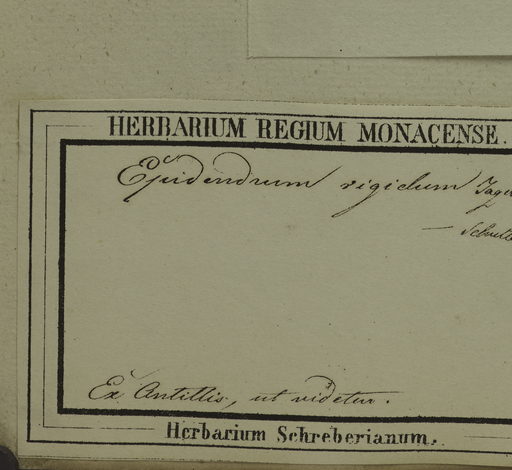 HERBARIUM REGIUM MONACENSE.
Epidendrum rigidum
Ex Antillis, ut videtur.
Herbarium Schreberianum.